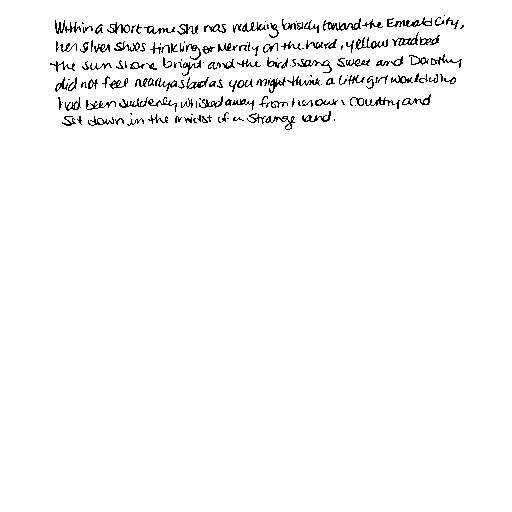 Within a short time she was walking briskly toward the Emerald City,
her silver shoes tinkling merrily on the hard, yellow roadbed
the sun shone bright and the birds sang sweet and Dorothy
did not feel nearly as bad as you might think a little girl would who
had been suddenly whisked away from her own country and
set down in the midst of a strange land.